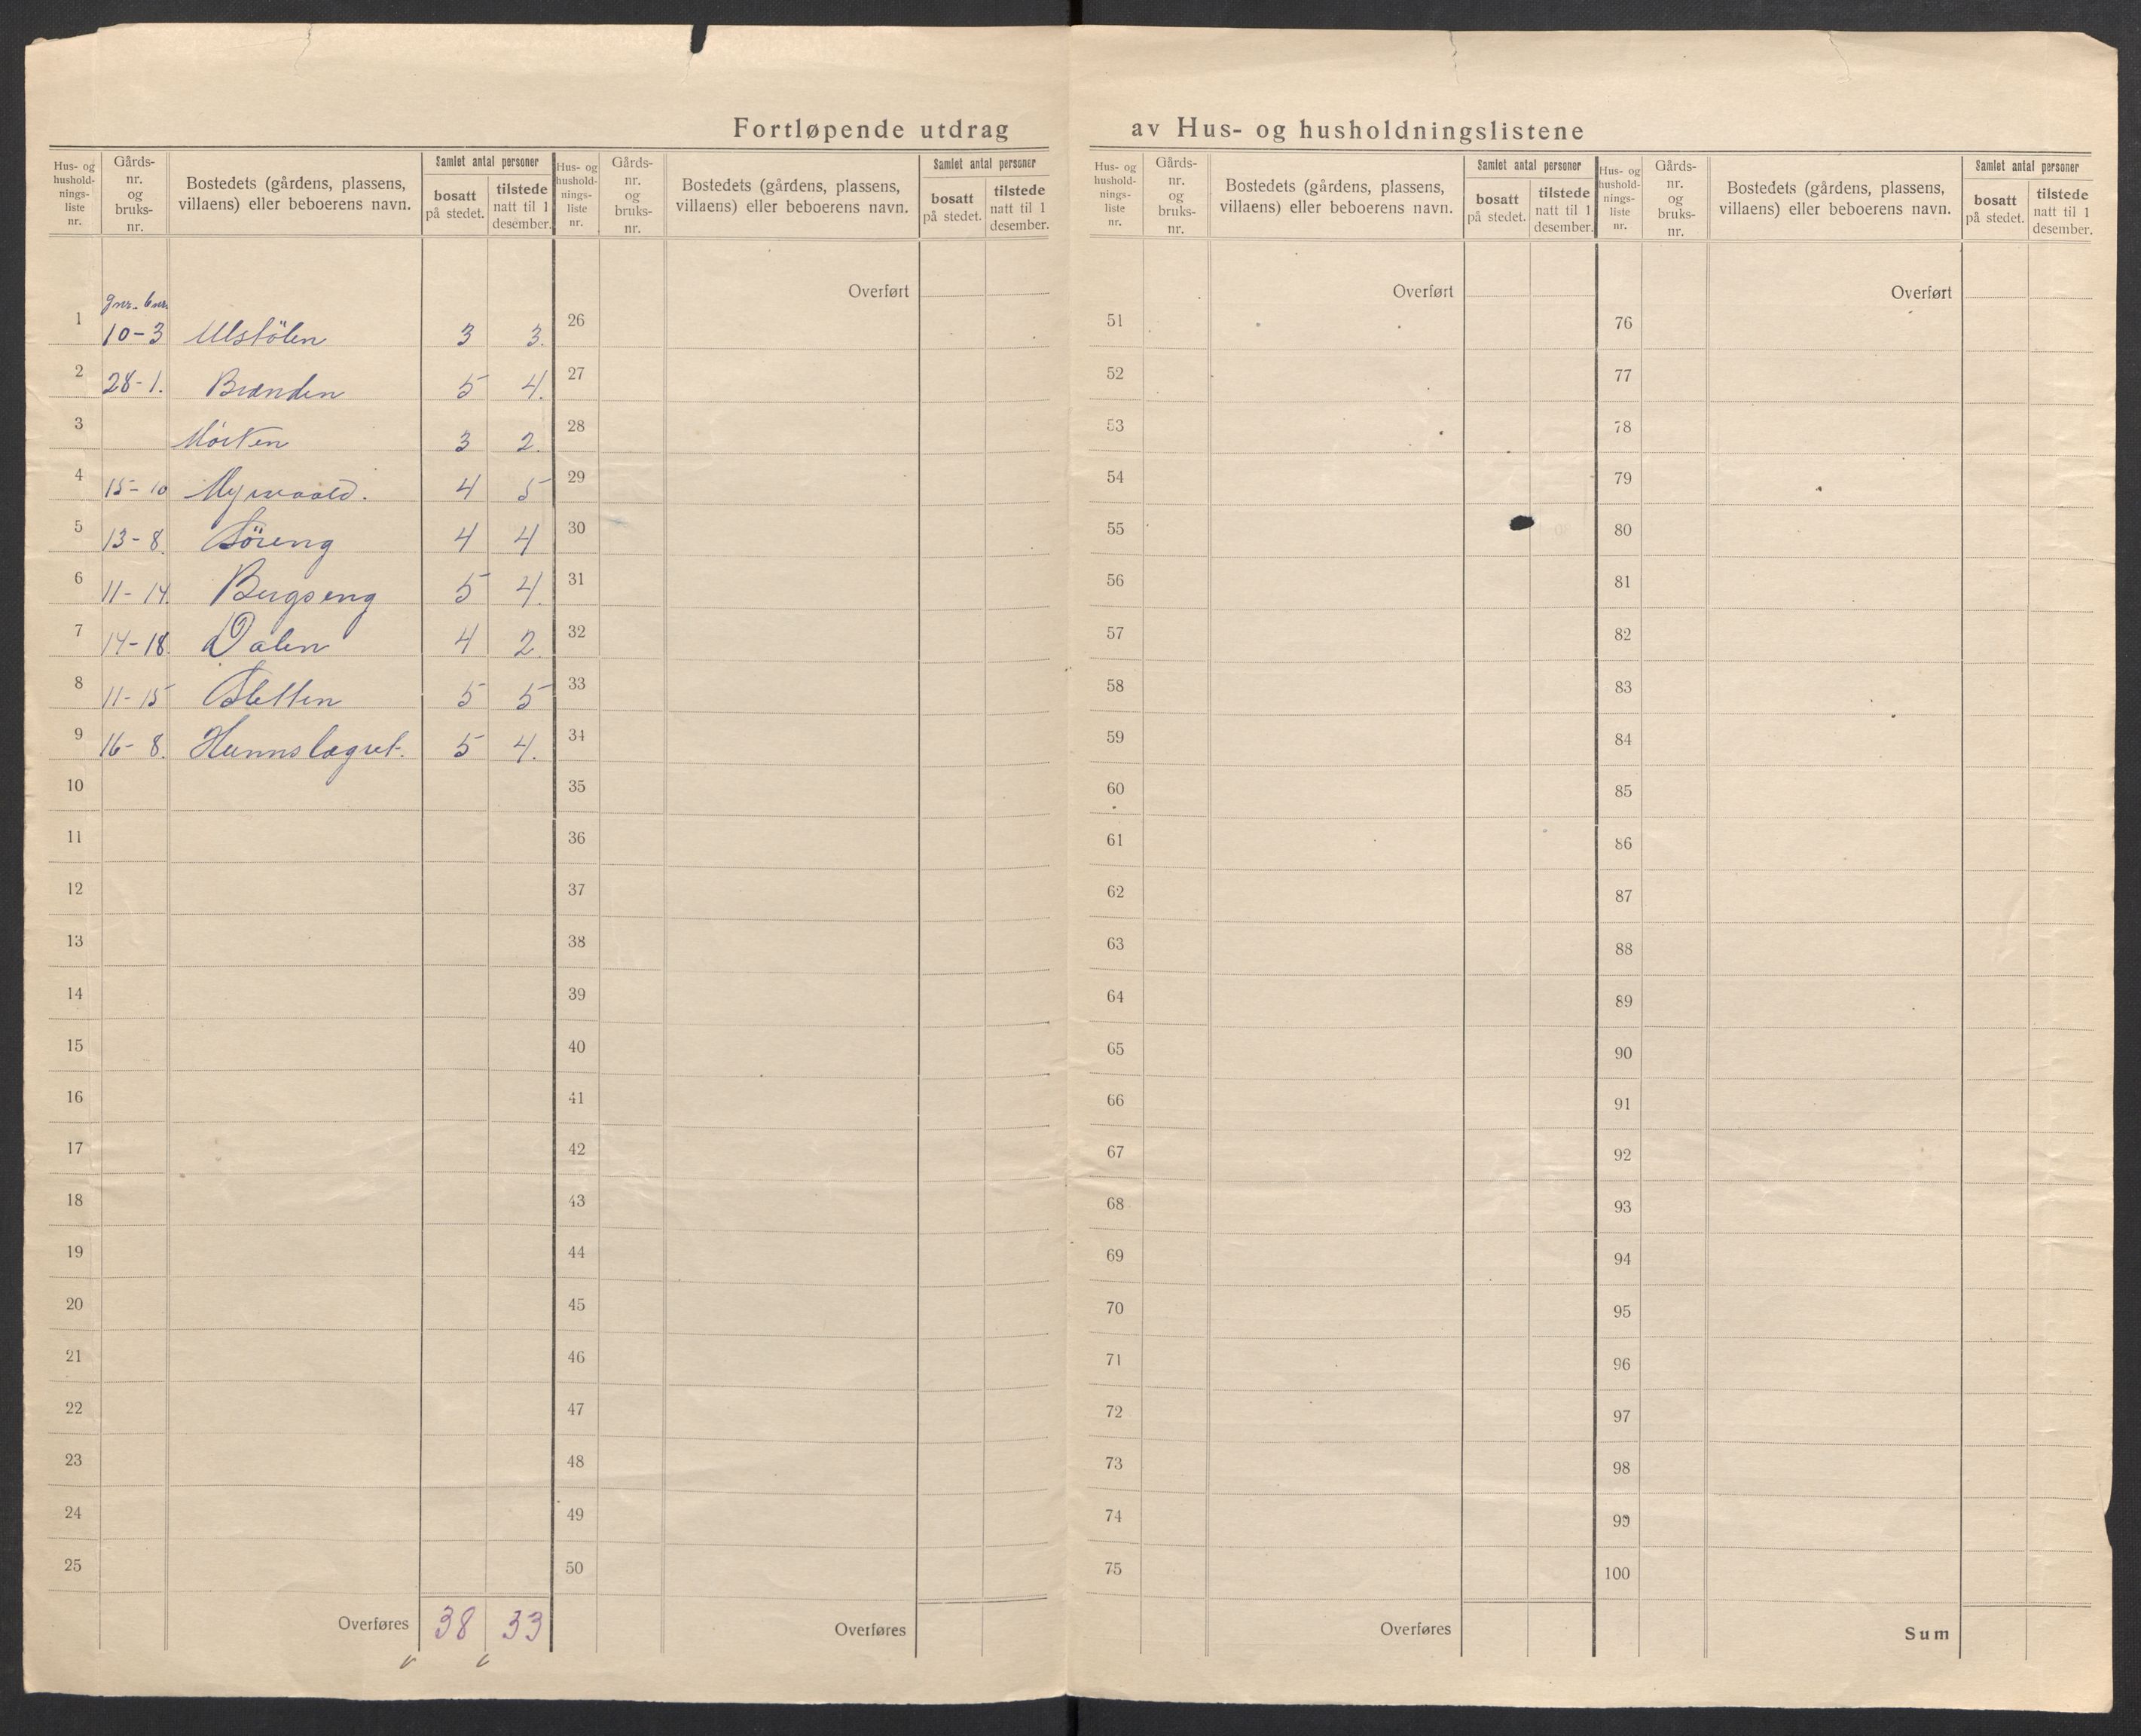 Fortløpende utdrag av Hus- og husholdningslistene
Hus- og hushold-nings-liste nr. Gårds-nr. og bruks-nr. Bostedets (gårdens, plassens, villaens) eller beboerens navn. Samlet antal personer bosatt på stedet. tilstede natt til 1 desember.
gnr. bnr.
1 10-3 Ulstölen 3 3.
2 28-1. Brænden 5 4.
3 Morken 3 2.
4 15-10 Myrvoold. 4 5
5 13-8. Söreng 4 4
6 11-14. Bergseng 5 4.
7 14-18. Dalen 4 2.
8 11-15 Sletten 5 5
9 16-8. Hunnslægret. 5 4.
10
11
12
13
14
15
16
17
18
19
20
21
22
23
24
25
Overføres 38 33
Hus- og hushold-nings-liste nr. Gårds-nr. og bruks-nr. Bostedets (gårdens, plassens, villaens) eller beboerens navn. Samlet antal personer bosatt på stedet. tilstede natt til 1 desember.
Overført
26
27
28
29
30
31
32
33
34
35
36
37
38
39
40
41
42
43
44
45
46
47
48
49
50
Overføres
Hus- og hushold-nings-liste nr. Gårds-nr. og bruks-nr. Bostedets (gårdens, plassens, villaens) eller beboerens navn. Samlet antal personer bosatt på stedet. tilstede natt til 1 desember.
Overført
51
52
53
54
55
56
57
58
59
60
61
62
63
64
65
66
67
68
69
70
71
72
73
74
75
Overføres
Hus- og hushold-nings-liste nr. Gårds-nr. og bruks-nr. Bostedets (gårdens, plassens, villaens) eller beboerens navn. Samlet antal personer bosatt på stedet. tilstede natt til 1 desember.
Overført
76
77
78
79
80
81
82
83
84
85
86
87
88
89
90
91
92
93
94
95
96
97
98
99
100
Sum